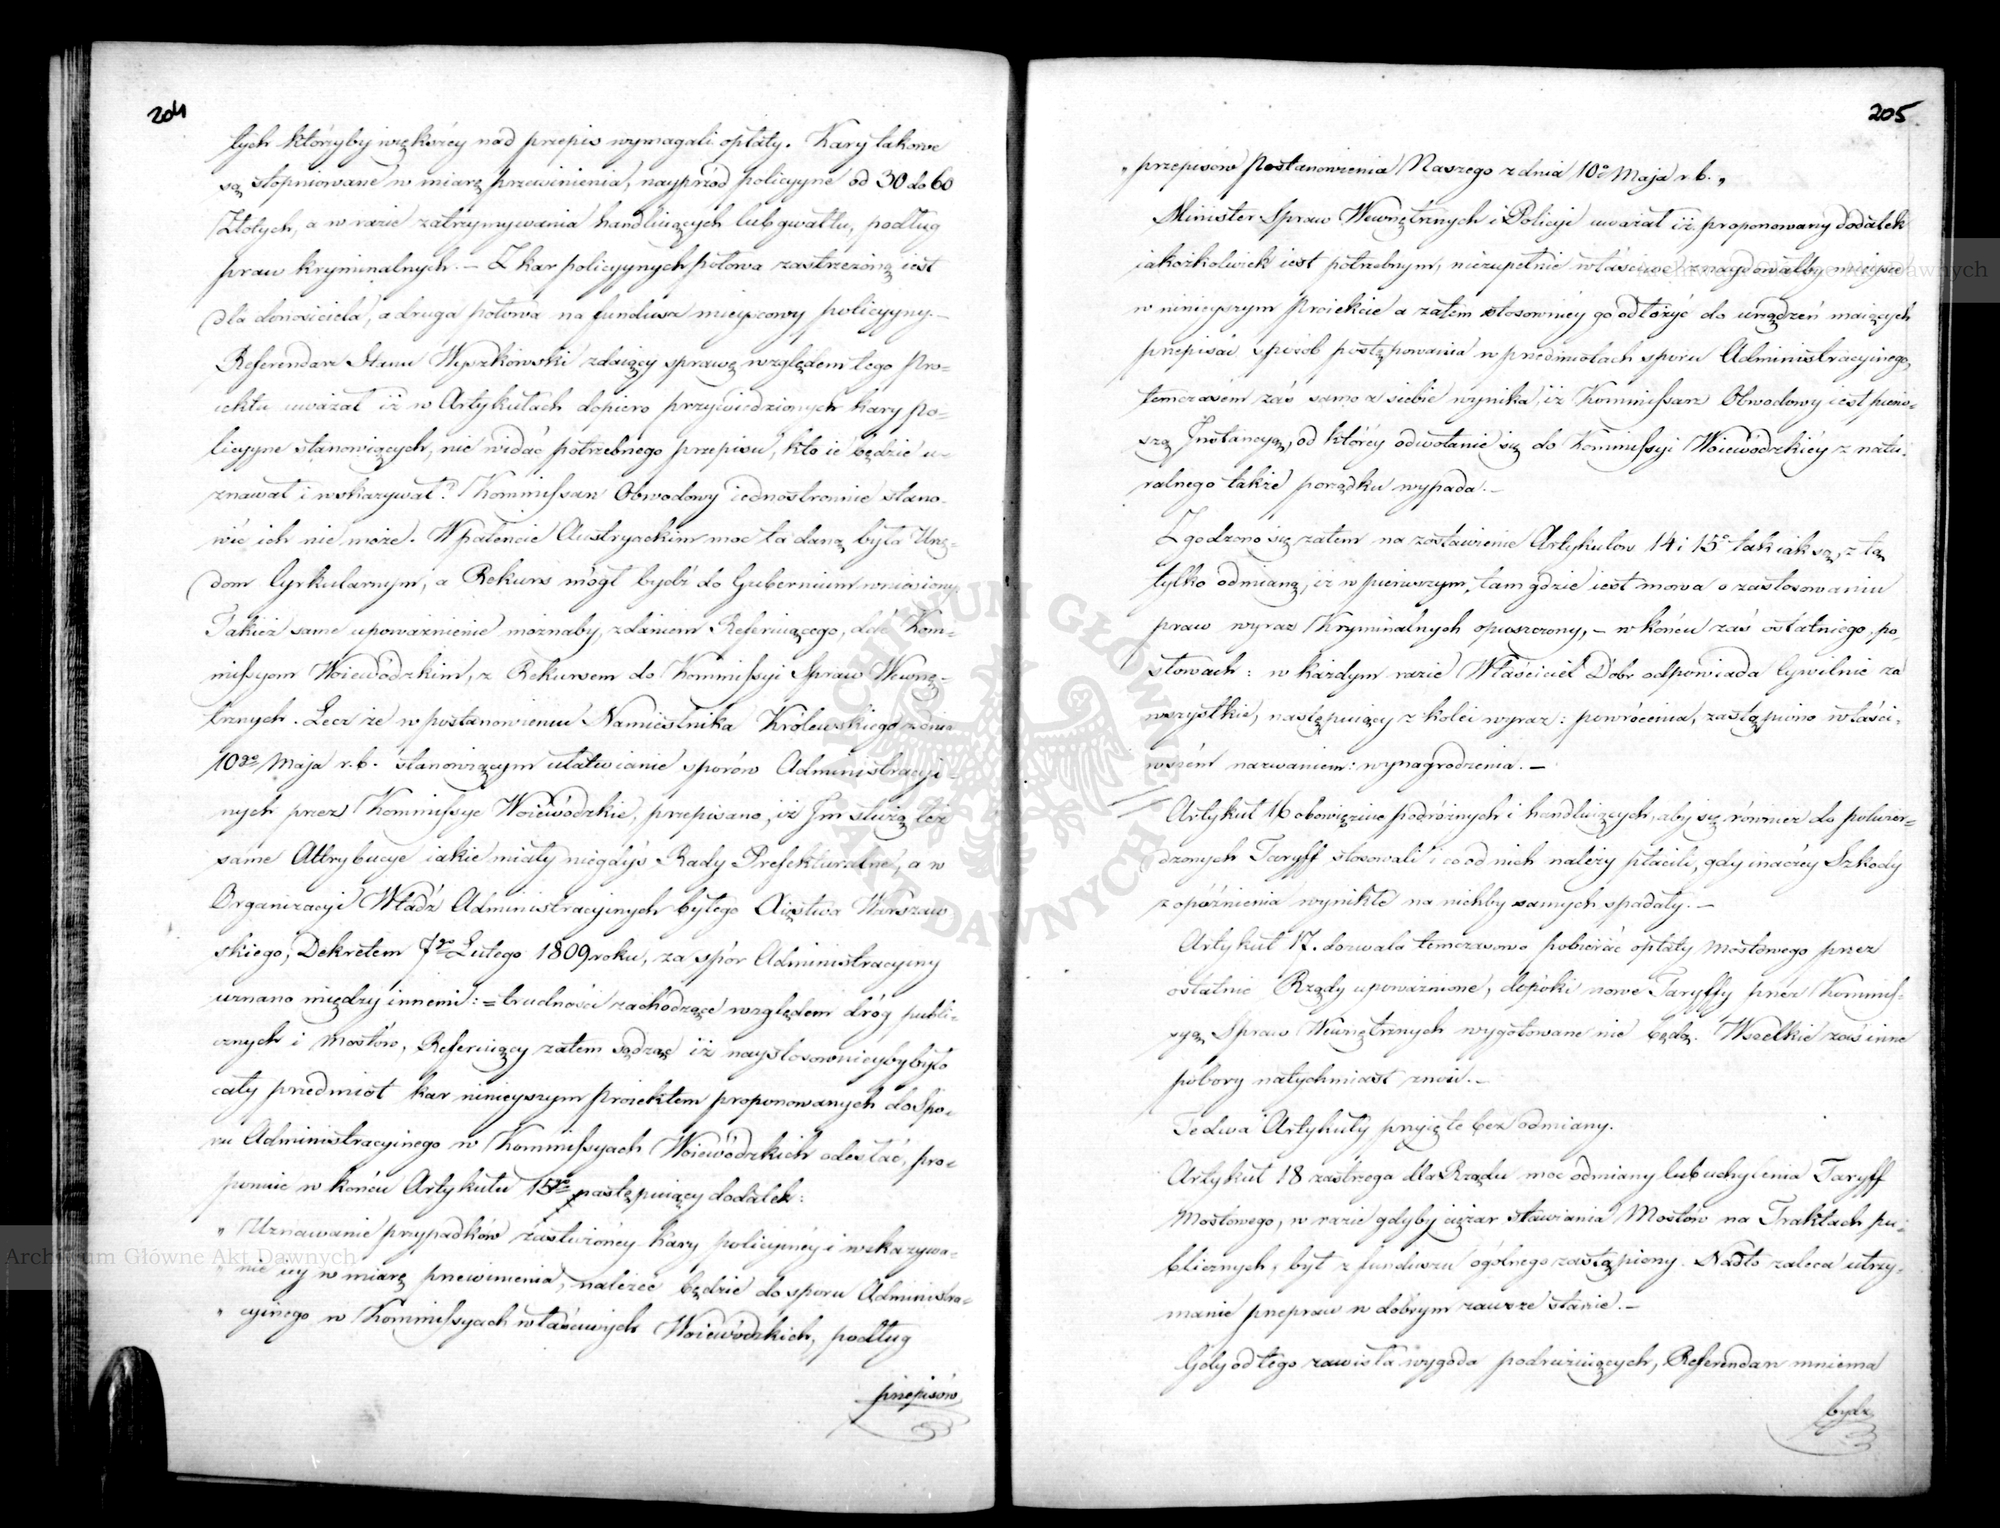 204
tych którzyby większéy nad przepis wymagali opłaty. Kary takowe
są stopniowane w miarę przewinienia, nayprzód policyyne od 30 do 60
Złotych, a w razie zatrzymywania handluiących lub gwałtu, podług
praw kryminalnych. – Z kar policyynych połowa zastrzeżoną iest
dla donosiciela, a druga połowa na fundusz mieyscowy policyyny. –
Referendarz Stanu Wyszkowski zdaiący sprawę względem tego Pro-
iektu uważał iż w Artykułach dopiero przywiedzionych kary po-
licyyne stanowiących, nie widać potrzebnego przepisu, kto ie będzie u-
znawał i wskazywał? Kommissarz Obwodowy iednostronnie stano-
wić ich nie może. W patencie Austryackim moc ta daną była Urzę-
dom Cyrkularnym, a Rekurs mógł bydź do Gubernium wniesiony.
Takież same upoważnienie możnaby, zdaniem Referuiącego, dać Kom-
missyom Woiewódzkim, z Rekursem do Kommissyi Spraw Wewnę-
trznych. Lecz że w postanowieniu Namiestnika Królewskiego z dnia
10go Maja r. b. stanowiącym ułatwianie sporów Administracyi-
nych przez Kommissye Woiewódzkie, przepisano, iż Im służą też
same Attrybucye iakie miały niegdyś Rady Prefekturalne, a w
Organizacyi Władz Administracyinych byłego Xięstwa Warszaw
skiego, Dekretem 7go Lutego 1809 roku, za spór Administracyiny
uznano między innemi: = trudności zachodzące względem dróg publi-
cznych i mostów, Referuiący zatem sądząc iż naystosownieyby było
cały przedmiot kar ninieyszym proiektem proponowanych do Spo-
ru Administracyinego w Kommissyach Woiewódzkich odesłać, pro-
ponuie w końcu Artykułu 15go następuiący dodatek:
" Uznawanie przypadków zasłużonéy kary policyinéy i wskazywa-
" nie iey w miarę przewinienia, należéc będzie do sporu Administra-
" cyinego w Kommissyach właściwych Woiewódzkich, podług
przepisów
205
" przepisów Postanowienia Naszego z dnia 10o Maja r. b. "
Minister Spraw Wewnętrznych i Policyi uważał iż proponowany dodatek
iakożkolwiek iest potrzebnym, niezupełnie właściwe znaydowałby mieysce
w ninieyszym Proiekcie a zatem stosowniéy go odłożyć do urządzeń maiących
przepisać sposób postępowania w przedmiotach sporu Administracyinego,
tymczasem zaś samo z siebie wynika, iż Kommissarz Obwodowy iest pierw-
szą Instancyą, od któréy odwołanie się do Kommissyi Woiewódzkiéy z natu-
ralnego także porządku wypada. –
Zgodzono się zatem na zostawienie Artykułów 14 i 15o tak iak są, z tą
tylko odmianą, iż w pierwszym, tam gdzie iest mowa o zastosowaniu
praw wyraz Kryminalnych opuszczony, – w końcu zaś ostatniego, po
słowach: w każdym razie Właściciel Dobr odpowiada Cywilnie za
wszystkie, następuiący z kolei wyraz: powrócenia, zastąpiono właści-
wszém nazwaniem: wynagrodzenia. –
Artykuł 16 obowięzuie podróżnych i handluiących, aby się również do potwier-
dzonych Taryff stosowali i co od nich należy płacili, gdy inaczéy Szkody
z opóźnienia wynikłe na nichby samych spadały. –
Artykuł 17. dozwala tymczasowo pobierać opłaty mostowego przez
ostatnie Rządy upoważnione, dopóki nowe Taryffy przez Kommis-
syą Spraw Wewnętrznych wygotowane nie będą. Wszelkie zaś inne
pobory natychmiast znosi. –
Te dwa Artykuły przyięte bez odmiany.
Artykuł 18 zastrzega dla Rządu moc odmiany lub uchylenia Taryff
Mostowego, w razie gdyby ciężar stawiania Mostów na Traktach pu-
blicznych, był z funduszu ogólnego zastąpiony. Nadto zaleca utrzy-
manie przepraw w dobrym zawsze stanie. –
Gdy od tego zawisła wygoda podróżuiących, Referendarz mniema
bydź